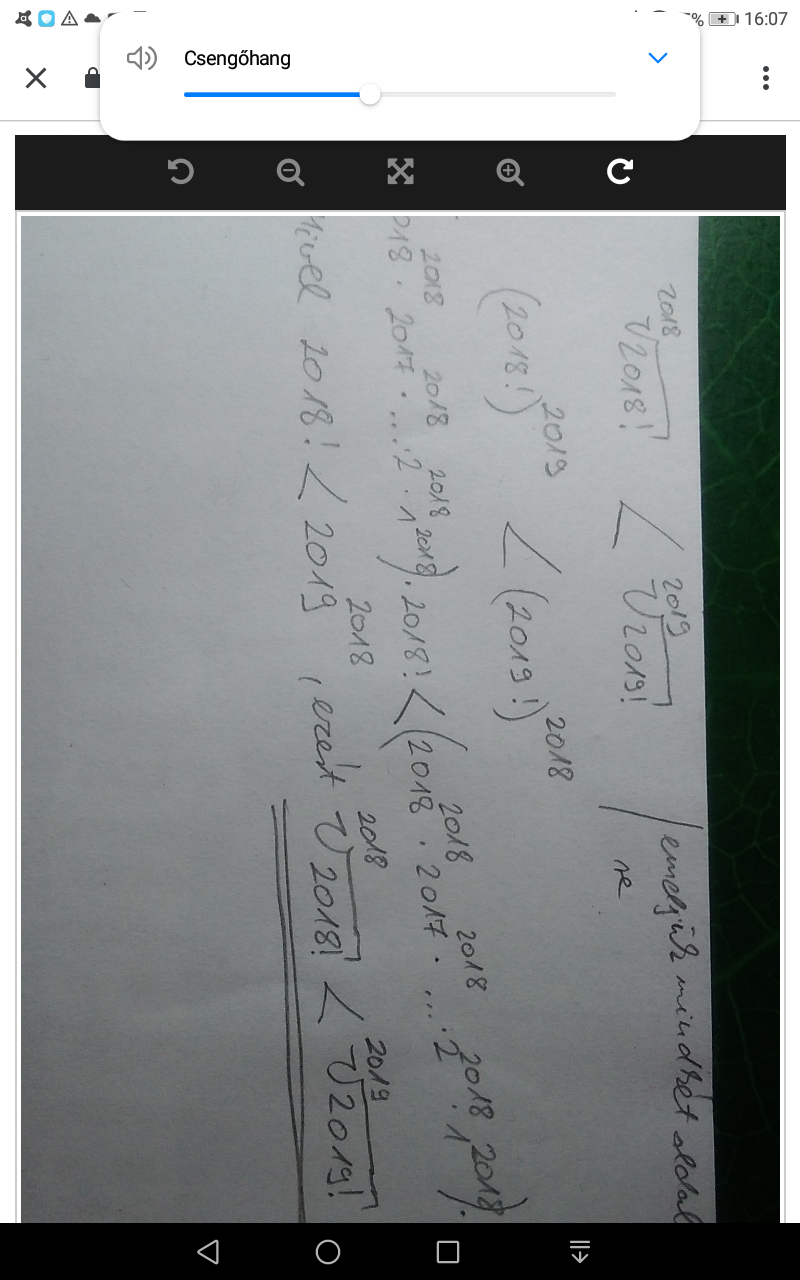 % 16:07
Csengőhang
²⁰¹⁸√2018! < ²⁰¹⁹√2019! / emeljük mindkét oldal
(2018!)²⁰¹⁹ < (2019!)²⁰¹⁸
018²⁰¹⁸ · 2017²⁰¹⁸ · ... · 2²⁰¹⁸ · 1²⁰¹⁸) · 2018! < (2018²⁰¹⁸ · 2017²⁰¹⁸ · ... · 2²⁰¹⁸ · 1²⁰¹⁸) ·
Mivel 2018! < 2019²⁰¹⁸, ezért ²⁰¹⁸√2018! < ²⁰¹⁹√2019!